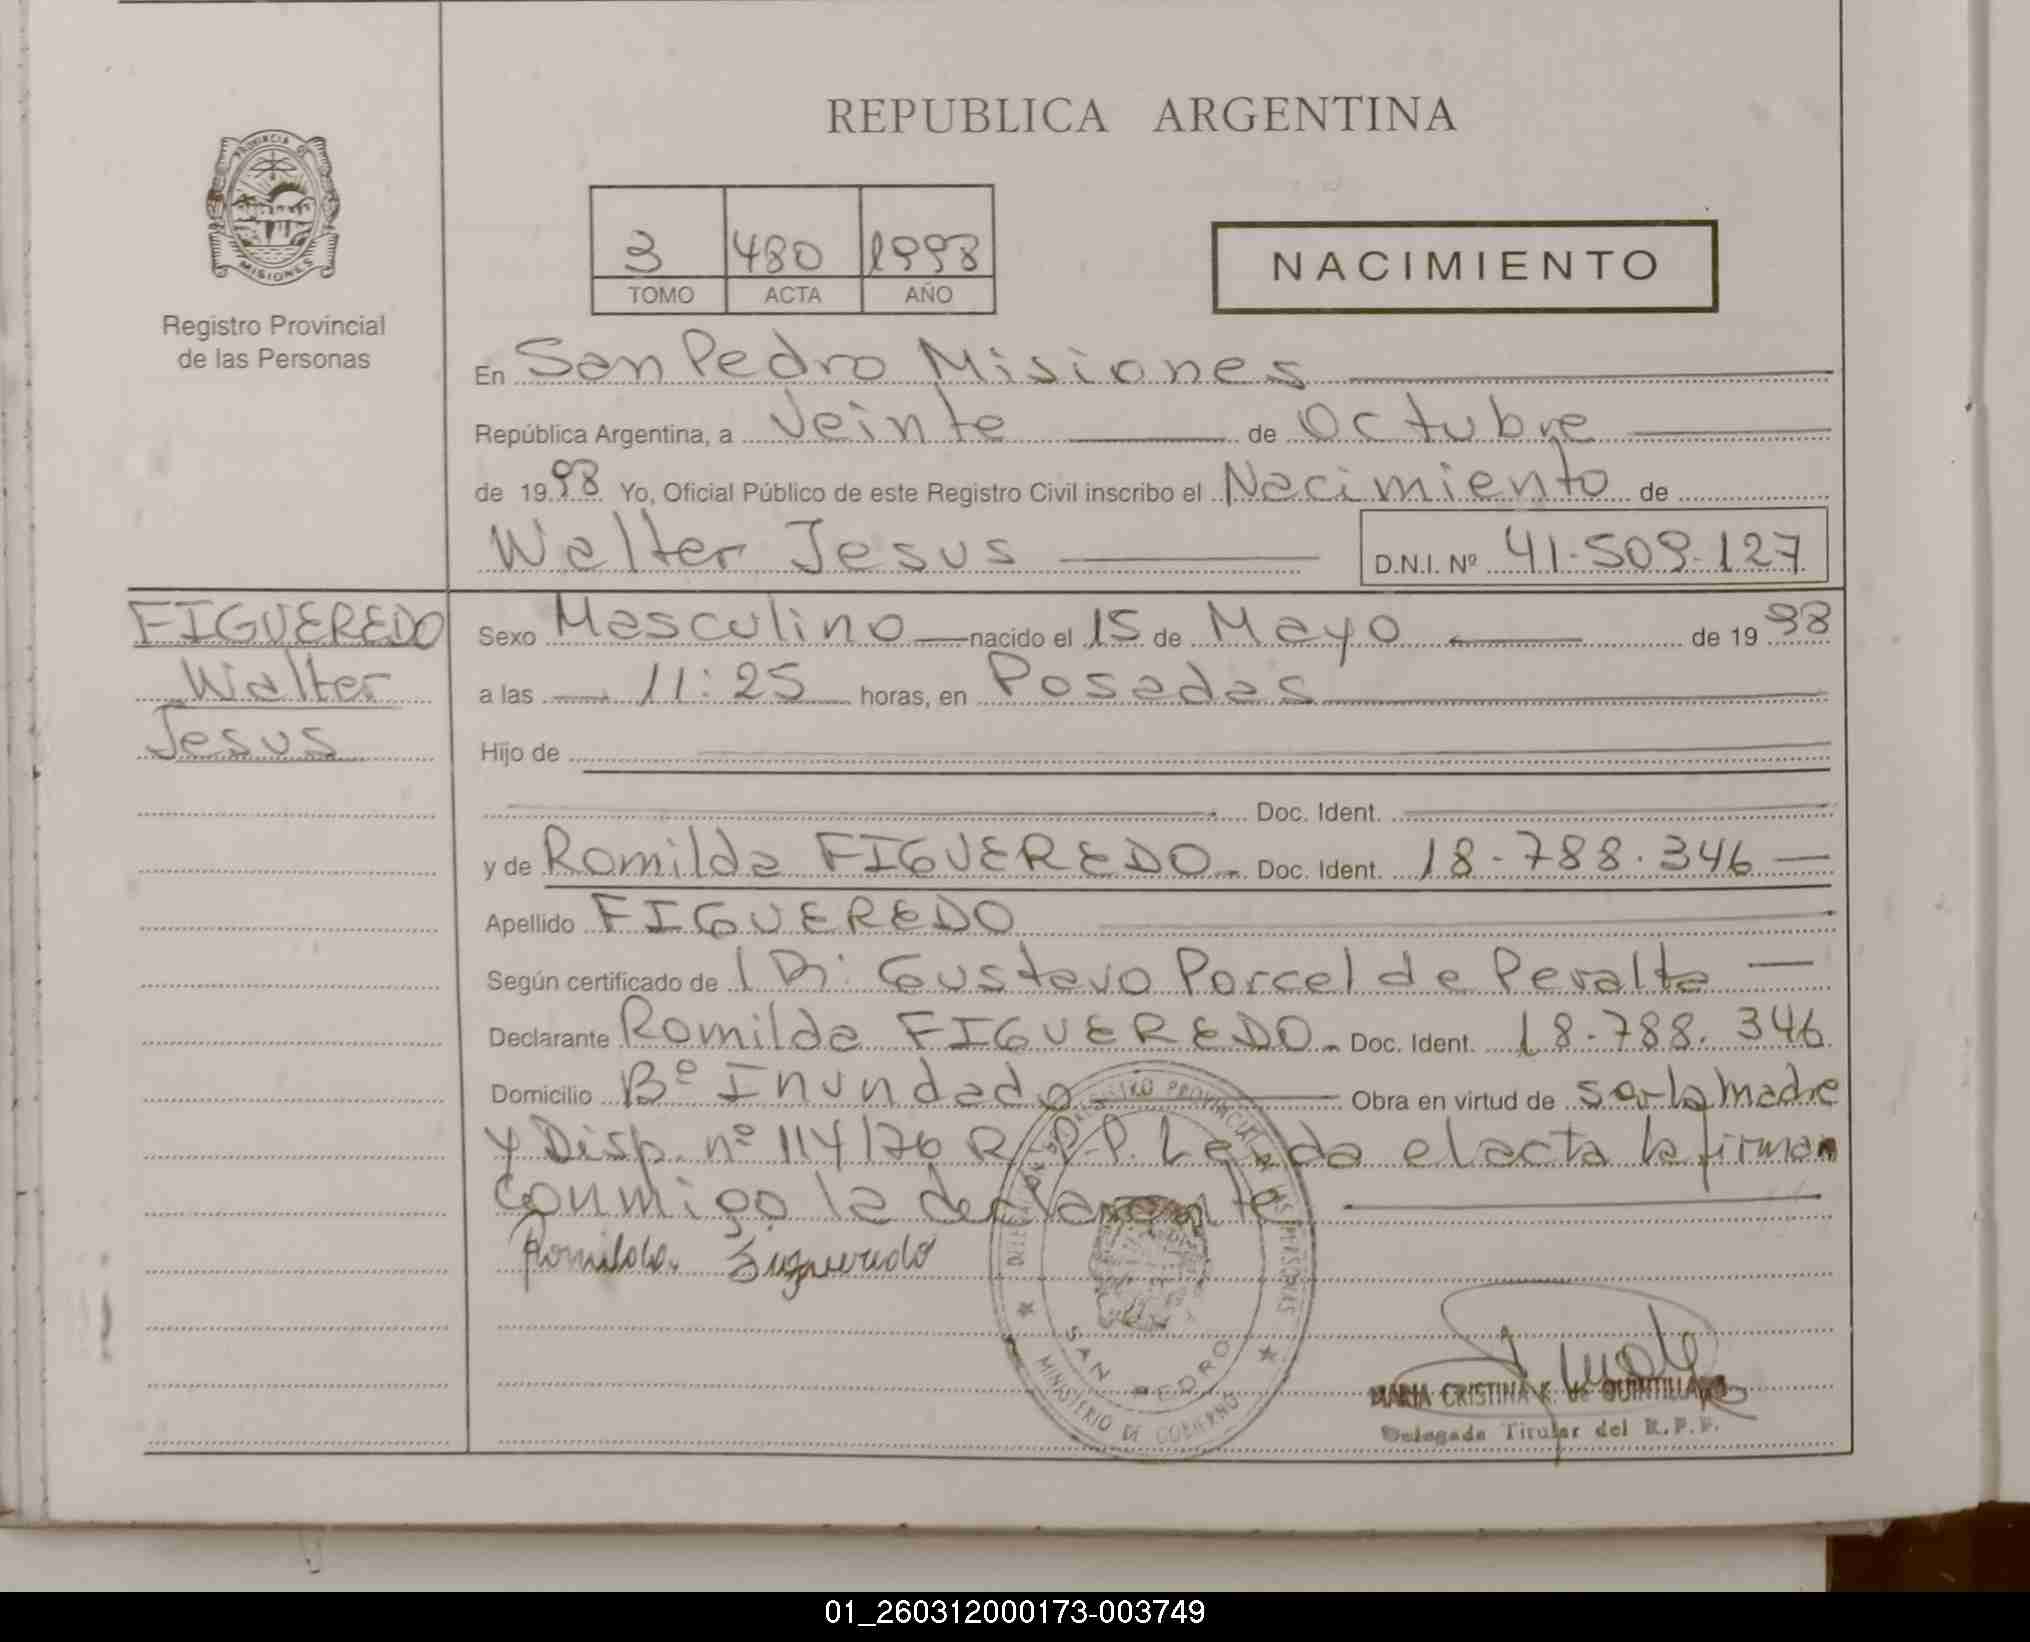 REPUBLICA ARGENTINA
PROVINCIA DE
MISIONES
Registro Provincial
de las Personas
3 480 1998
TOMO ACTA AÑO
NACIMIENTO
En San Pedro Misiones
República Argentina, a Veinte de Octubre
de 1998 Yo, Oficial Público de este Registro Civil inscribo el Nacimiento de
Walter Jesus D.N.I. Nº 41.509.127
FIGUEREDO
Walter
Jesus
Sexo Masculino nacido el 15 de Mayo de 1998
a las 11:25 horas, en Posadas
Hijo de
Doc. Ident.
y de Romilda FIGUEREDO. Doc. Ident. 18.788.346
Apellido FIGUEREDO
Según certificado de Dr. Gustavo Porcel de Peralta
Declarante Romilda FIGUEREDO. Doc. Ident. 18.788.346
Domicilio Bº Inundado Obra en virtud de ser la madre
y Disp. nº 114/76 R.P.P. Leida el acta la firman
conmigo la declarante
Romilda Figueredo
REGISTRO PROVINCIAL DE LAS PERSONAS
SAN PEDRO
MINISTERIO DE GOBIERNO
MARIA CRISTINA K. de QUINTILLAN
Delegada Titular del R.P.P.
01_260312000173-003749